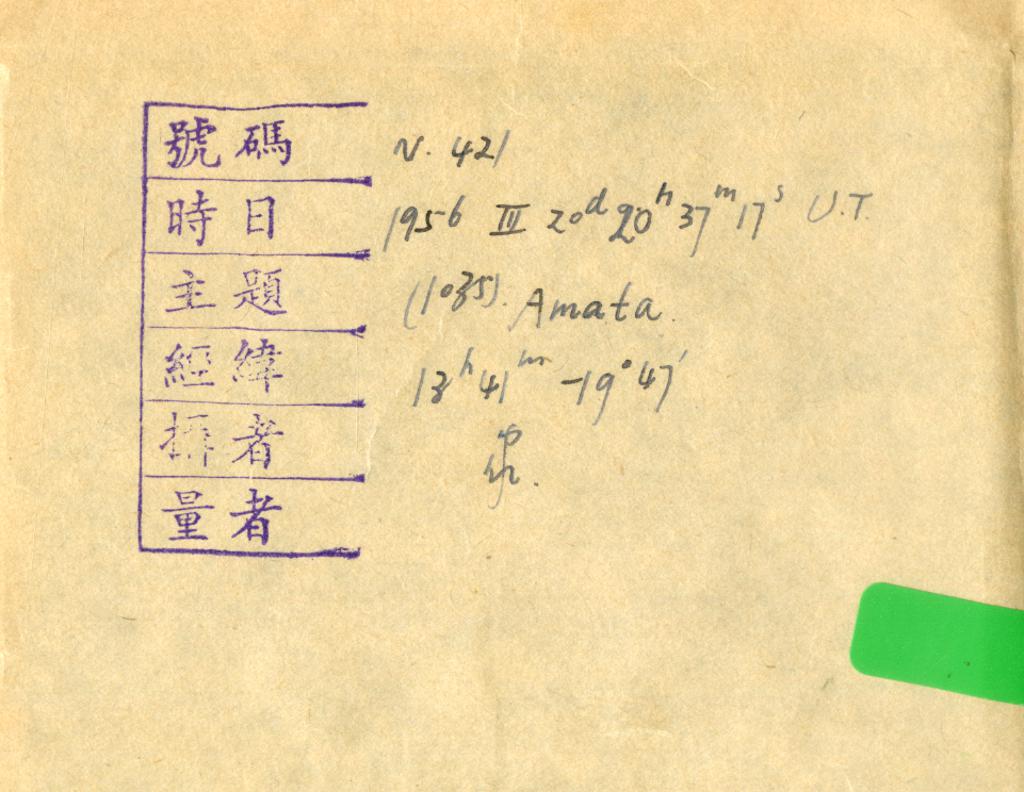 號碼 N. 421
時日 1956 III 20d 20h 37m 17s U.T.
主題 (1035). Amata
經緯 13h 41m -19° 47'
攝者
量者